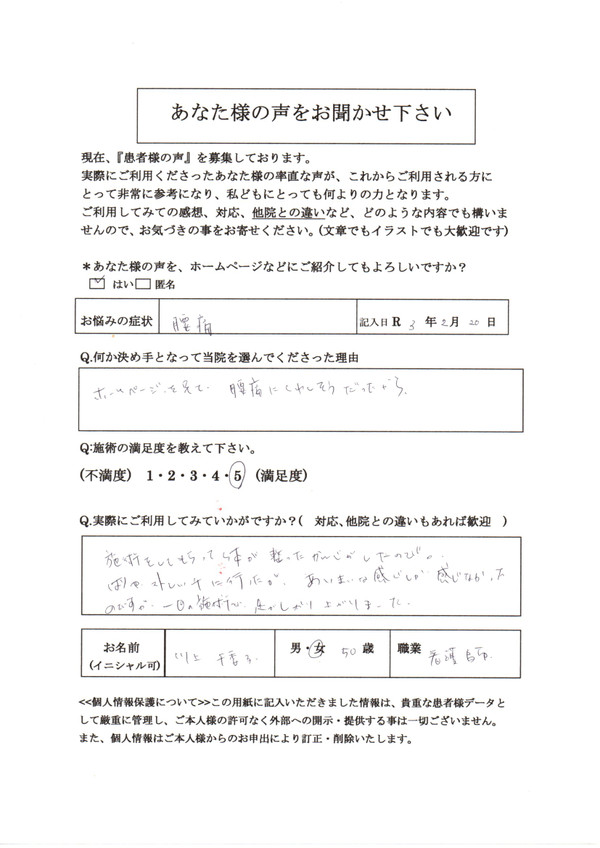 あなた様の声をお聞かせ下さい
現在、『患者様の声』を募集しております。
実際にご利用くださったあなた様の率直な声が、これからご利用される方に
とって非常に参考になり、私どもにとっても何よりの力となります。
ご利用してみての感想、対応、他院との違いなど、どのような内容でも構いま
せんので、お気づきの事をお寄せください。(文章でもイラストでも大歓迎です)
*あなた様の声を、ホームページなどにご紹介してもよろしいですか?
はい 匿名
お悩みの症状 腰痛 記入日 R 3 年 2 月 20 日
Q.何か決め手となって当院を選んでくださった理由
ホームページを見て 腰痛にくわしそうだったから。
Q:施術の満足度を教えて下さい。
(不満度) 1・2・3・4・5 (満足度)
Q.実際にご利用してみていかがですか?( 対応、他院との違いもあれば歓迎 )
施術をしてもらって 体が 整ったかんじがしたので
に行ったが、 あいまいな感じしか 感じなかった
のですが 一回の施術で 足がしっかり上がりました。
お名前 川上
(イニシャル可) 男・女 50 歳 職業 看護師
<<個人情報保護について>>この用紙に記入いただきました情報は、貴重な患者様データと
して厳重に管理し、ご本人様の許可なく外部への開示・提供する事は一切ございません。
また、個人情報はご本人様からのお申出により訂正・削除いたします。